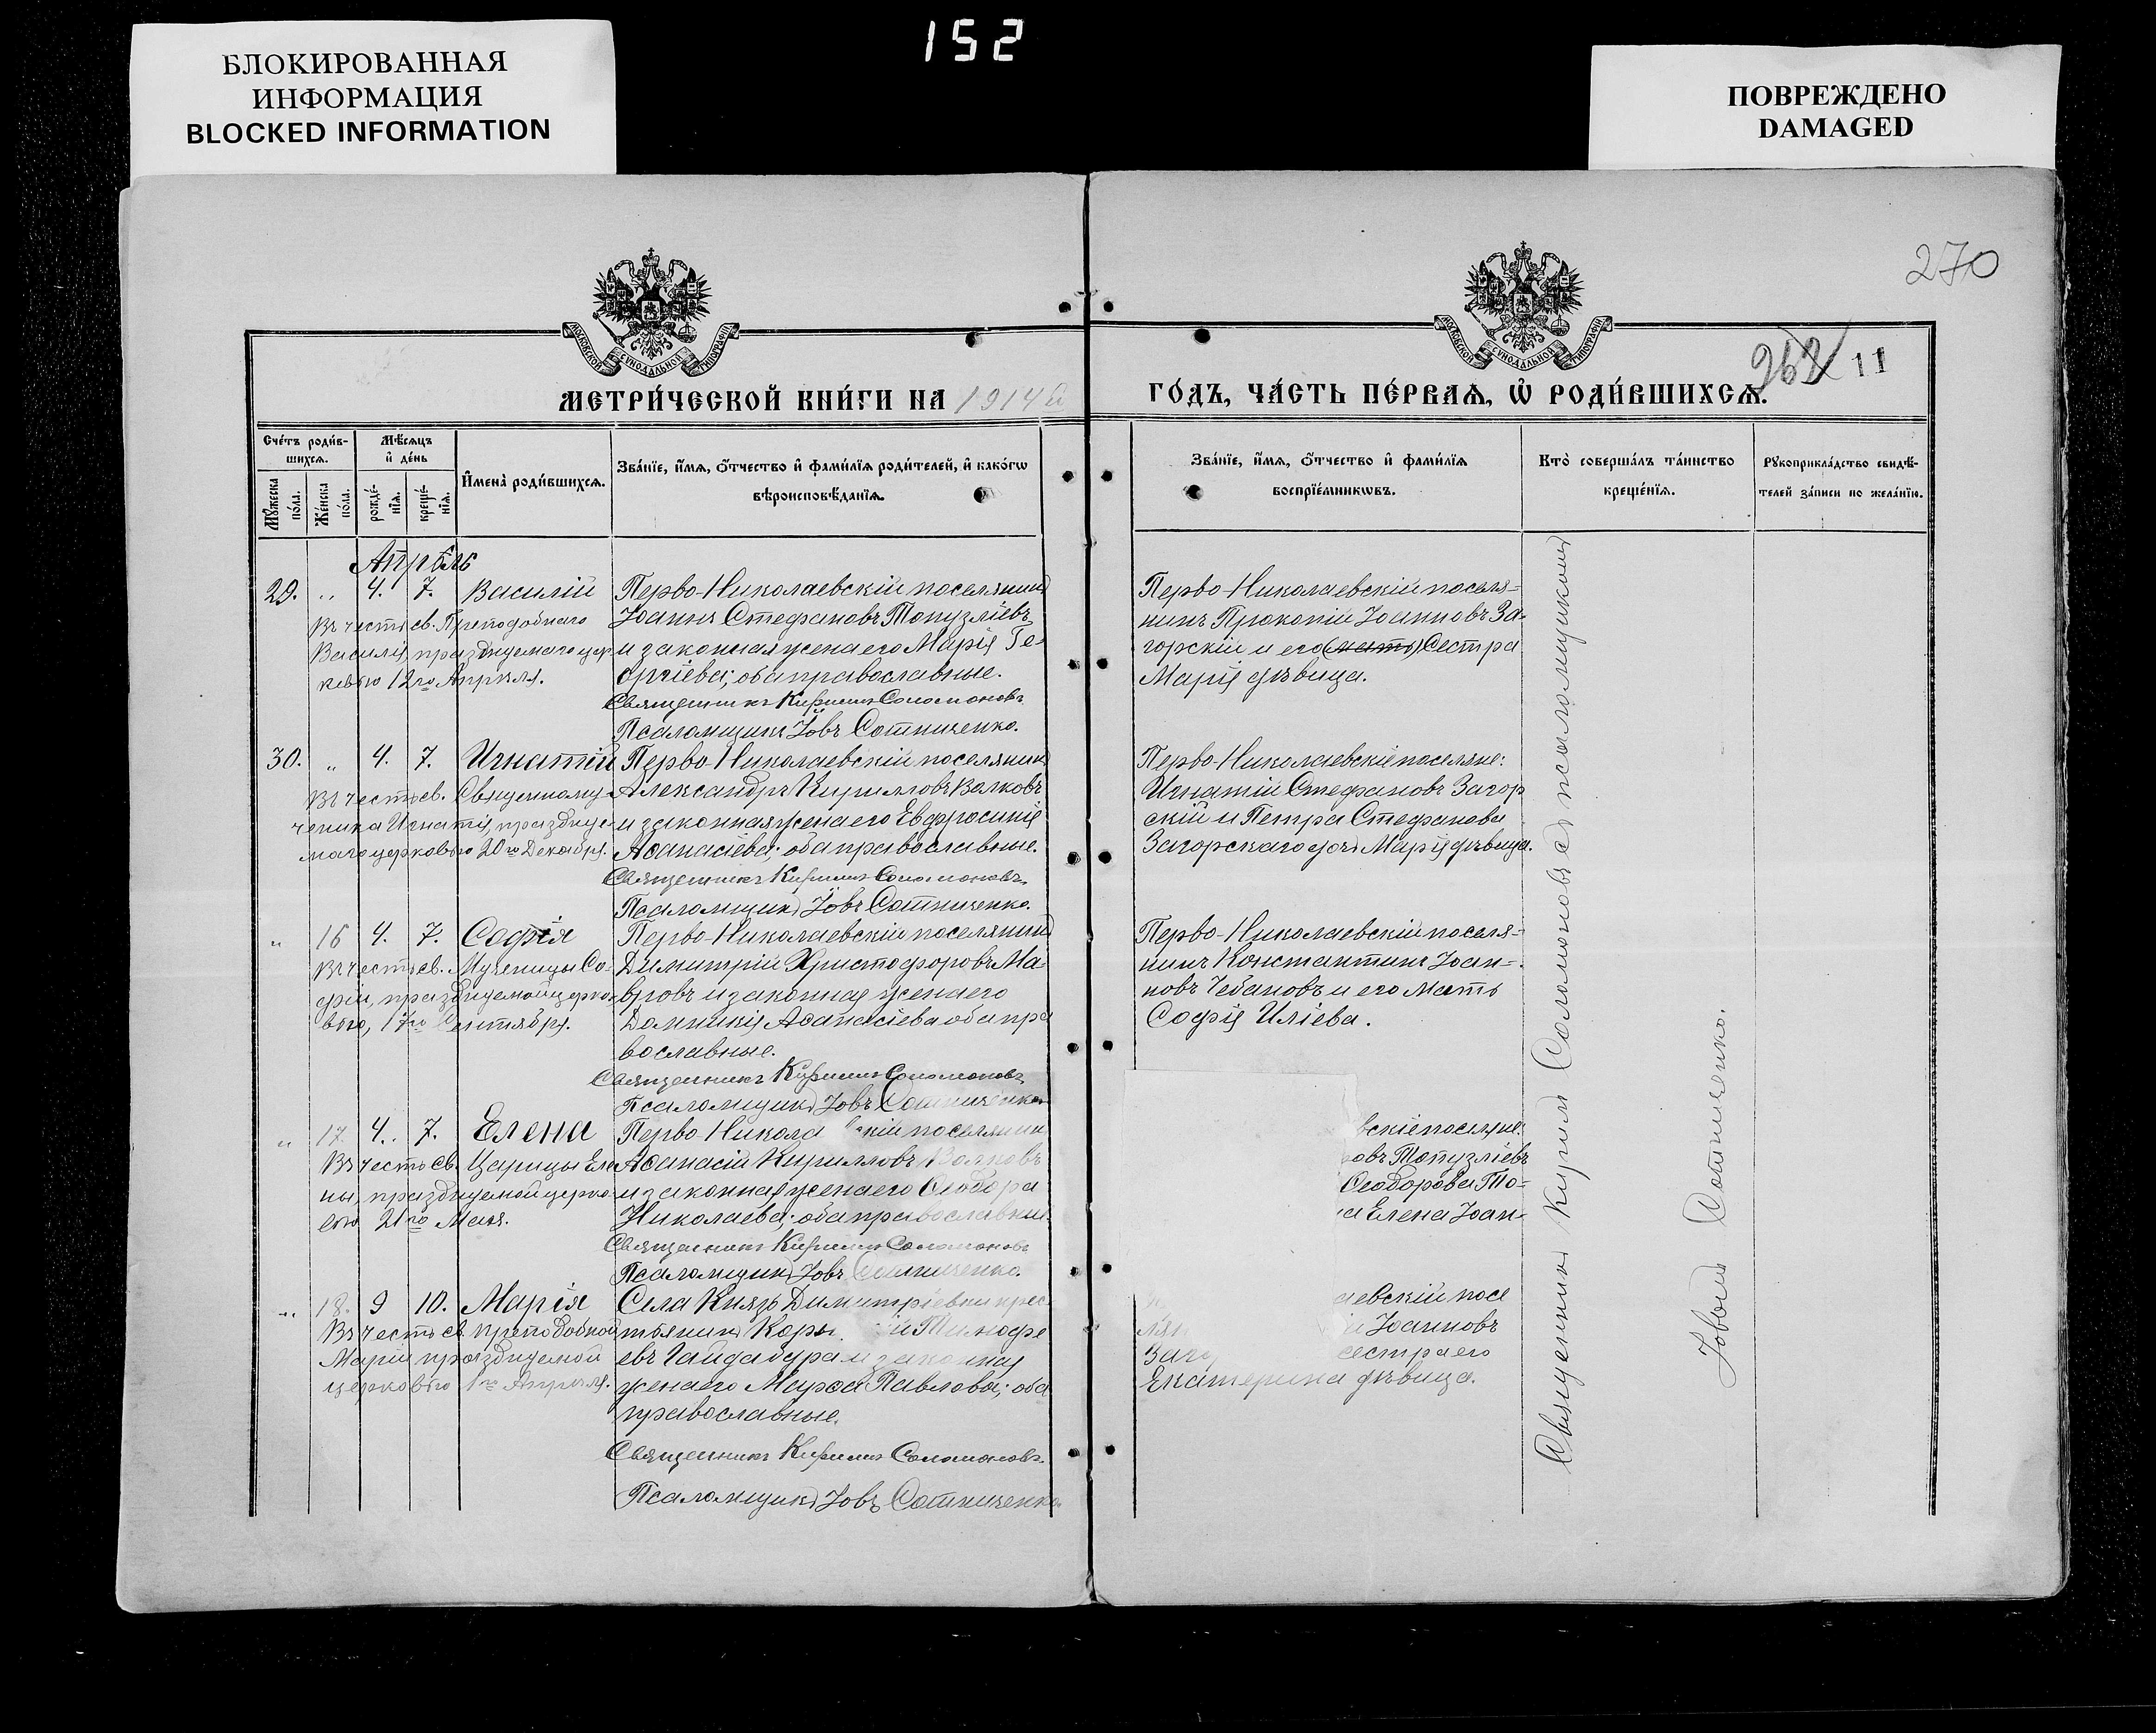 152
БЛОКИРОВАННАЯ
ИНФОРМАЦИЯ
BLOCKED INFORMATION
ПОВРЕЖДЕНО
DAMAGED
270
МОСКОВСКОЙ СѴНОДАЛЬНОЙ ТИПОГРАФІИ
МОСКОВСКОЙ СѴНОДАЛЬНОЙ ТИПОГРАФІИ
11
МЕТРИ́ЧЕСКОЙ КНИ́ГИ НА 1914й
ГО́ДЪ, ЧА́СТЬ ПЕ́РВАѦ, Ѡ҆ РОДИ́ВШИХСѦ.
Сче́тъ роди́в-
шихсѧ.
Мꙋ́жеска
по́ла.
Же́нска
по́ла.
Мѣ́сѧцъ
и҆ де́нь
рожде́-
нїѧ.
креще́-
нїѧ.
И҆мена̀ роди́вшихсѧ.
Зва́нїе, и҆́мѧ, ѻ҆́тчество и҆ фами́лїѧ роди́телей, и҆ како́гѡ
вѣроисповѣ́данїѧ.
Зва́нїе, и҆́мѧ, ѻ҆́тчество и҆ фами́лїѧ
воспрїе́мникѡвъ.
Кто̀ соверша́лъ та́инство
креще́нїѧ.
Рꙋкоприкла́дство свидѣ́-
телей за́писи по жела́нїю.
Апрѣль
29. „ 4. 7. Василій
Въ честь св. Преподобнаго
Василія, празднуемаго цер-
ковью 12го Апрѣля.
Перво-Николаевскій поселянинъ
Іоаннъ Стефановъ Топузліевъ
и законная жена его Марія Ге-
оргіева; оба православные.
Священникъ Кириллъ Соломоновъ
Псаломщикъ Іовъ Сотниченко.
Перво-Николаевскій поселя-
нинъ Прокопій Іоанновъ За-
горскій и его (мать) Сестра
Марія дѣвица.
30. „ 4. 7. Игнатій
Въ честь св. Священному-
ченика Игнатія, празднуе-
маго церковью 20го Декабря.
Перво-Николаевскій поселянинъ
Александръ Кирилловъ Волковъ
и законная жена его Евфросинія
Аѳанасіева; оба православные.
Священникъ Кириллъ Соломоновъ
Псаломщикъ Іовъ Сотниченко.
Перво-Николаевскіе поселяне:
Игнатій Стефановъ Загор
скій и Петра Стефанова
Загорскаго дочь Марія дѣвица.
„ 16 4. 7. Софія
Въ честь св. Мученицы Со-
фіи, празднуемой церко-
вью, 17го Сентября.
Перво-Николаевскій поселянинъ
Димитрій Христофоровъ Ма-
вровъ и законная жена его
Домникія Аѳанасіева оба пра
вославные.
Священникъ Кириллъ Соломоновъ
Псаломщикъ Іовъ Сотниченко
Перво-Николаевскій поселя-
нинъ Константинъ Іоан-
новъ Чебановъ и его Мать
Софія Иліева.
„ 17. 4. 7. Елена
Въ честь Св. Царицы Еле
ны, празднуемой церко-
вью 21го Мая.
Перво-Никола кій поселянинъ
Аѳанасій Кирилловъ Волковъ
и законная жена его Ѳеодора
Николаева; оба православные.
Священникъ Кириллъ Соломоновъ
Псаломщикъ Іовъ Сотниченко.
вскіе поселяне:
овъ Топузліевъ
Ѳеодорова То-
а Елена Іоан-
„ 18. 9 10. Марія
Въ честь св. преподобной
Маріи празднуемой
церковью 1го Апрѣля.
Села Князь Димитріевки крес
тьянинъ Корн й Тимофе
евъ Гайдабура и законная
жена его Марѳа Павлова; оба
православные.
Священникъ Кириллъ Соломоновъ.
Псаломщикъ Іовъ Сотниченко
аевскій посе
лян й Іоанновъ
Заго сестра его
Екатерина дѣвица.
Священникъ Кирилъ Соломоновъ съ псаломщикомъ
Іовымъ Сотниченко.